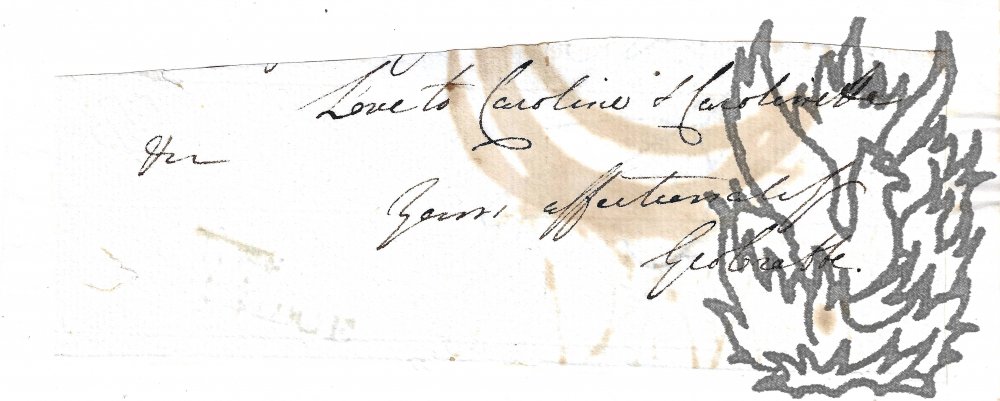 Love to Caroline & Carolinetta
Yours affectionately
Geo Crabbe.